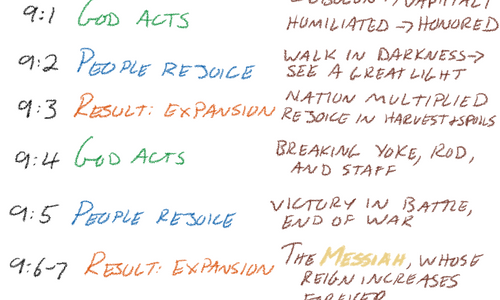 9:1 GOD ACTS
HUMILIATED → HONORED
9:2 PEOPLE REJOICE
WALK IN DARKNESS →
SEE A GREAT LIGHT
9:3 RESULT: EXPANSION
NATION MULTIPLIED
REJOICE IN HARVEST & SPOILS
9:4 GOD ACTS
BREAKING YOKE, ROD,
AND STAFF
9:5 PEOPLE REJOICE
VICTORY IN BATTLE,
END OF WAR
9:6-7 RESULT: EXPANSION
THE MESSIAH, WHOSE
REIGN INCREASES
FOREVER